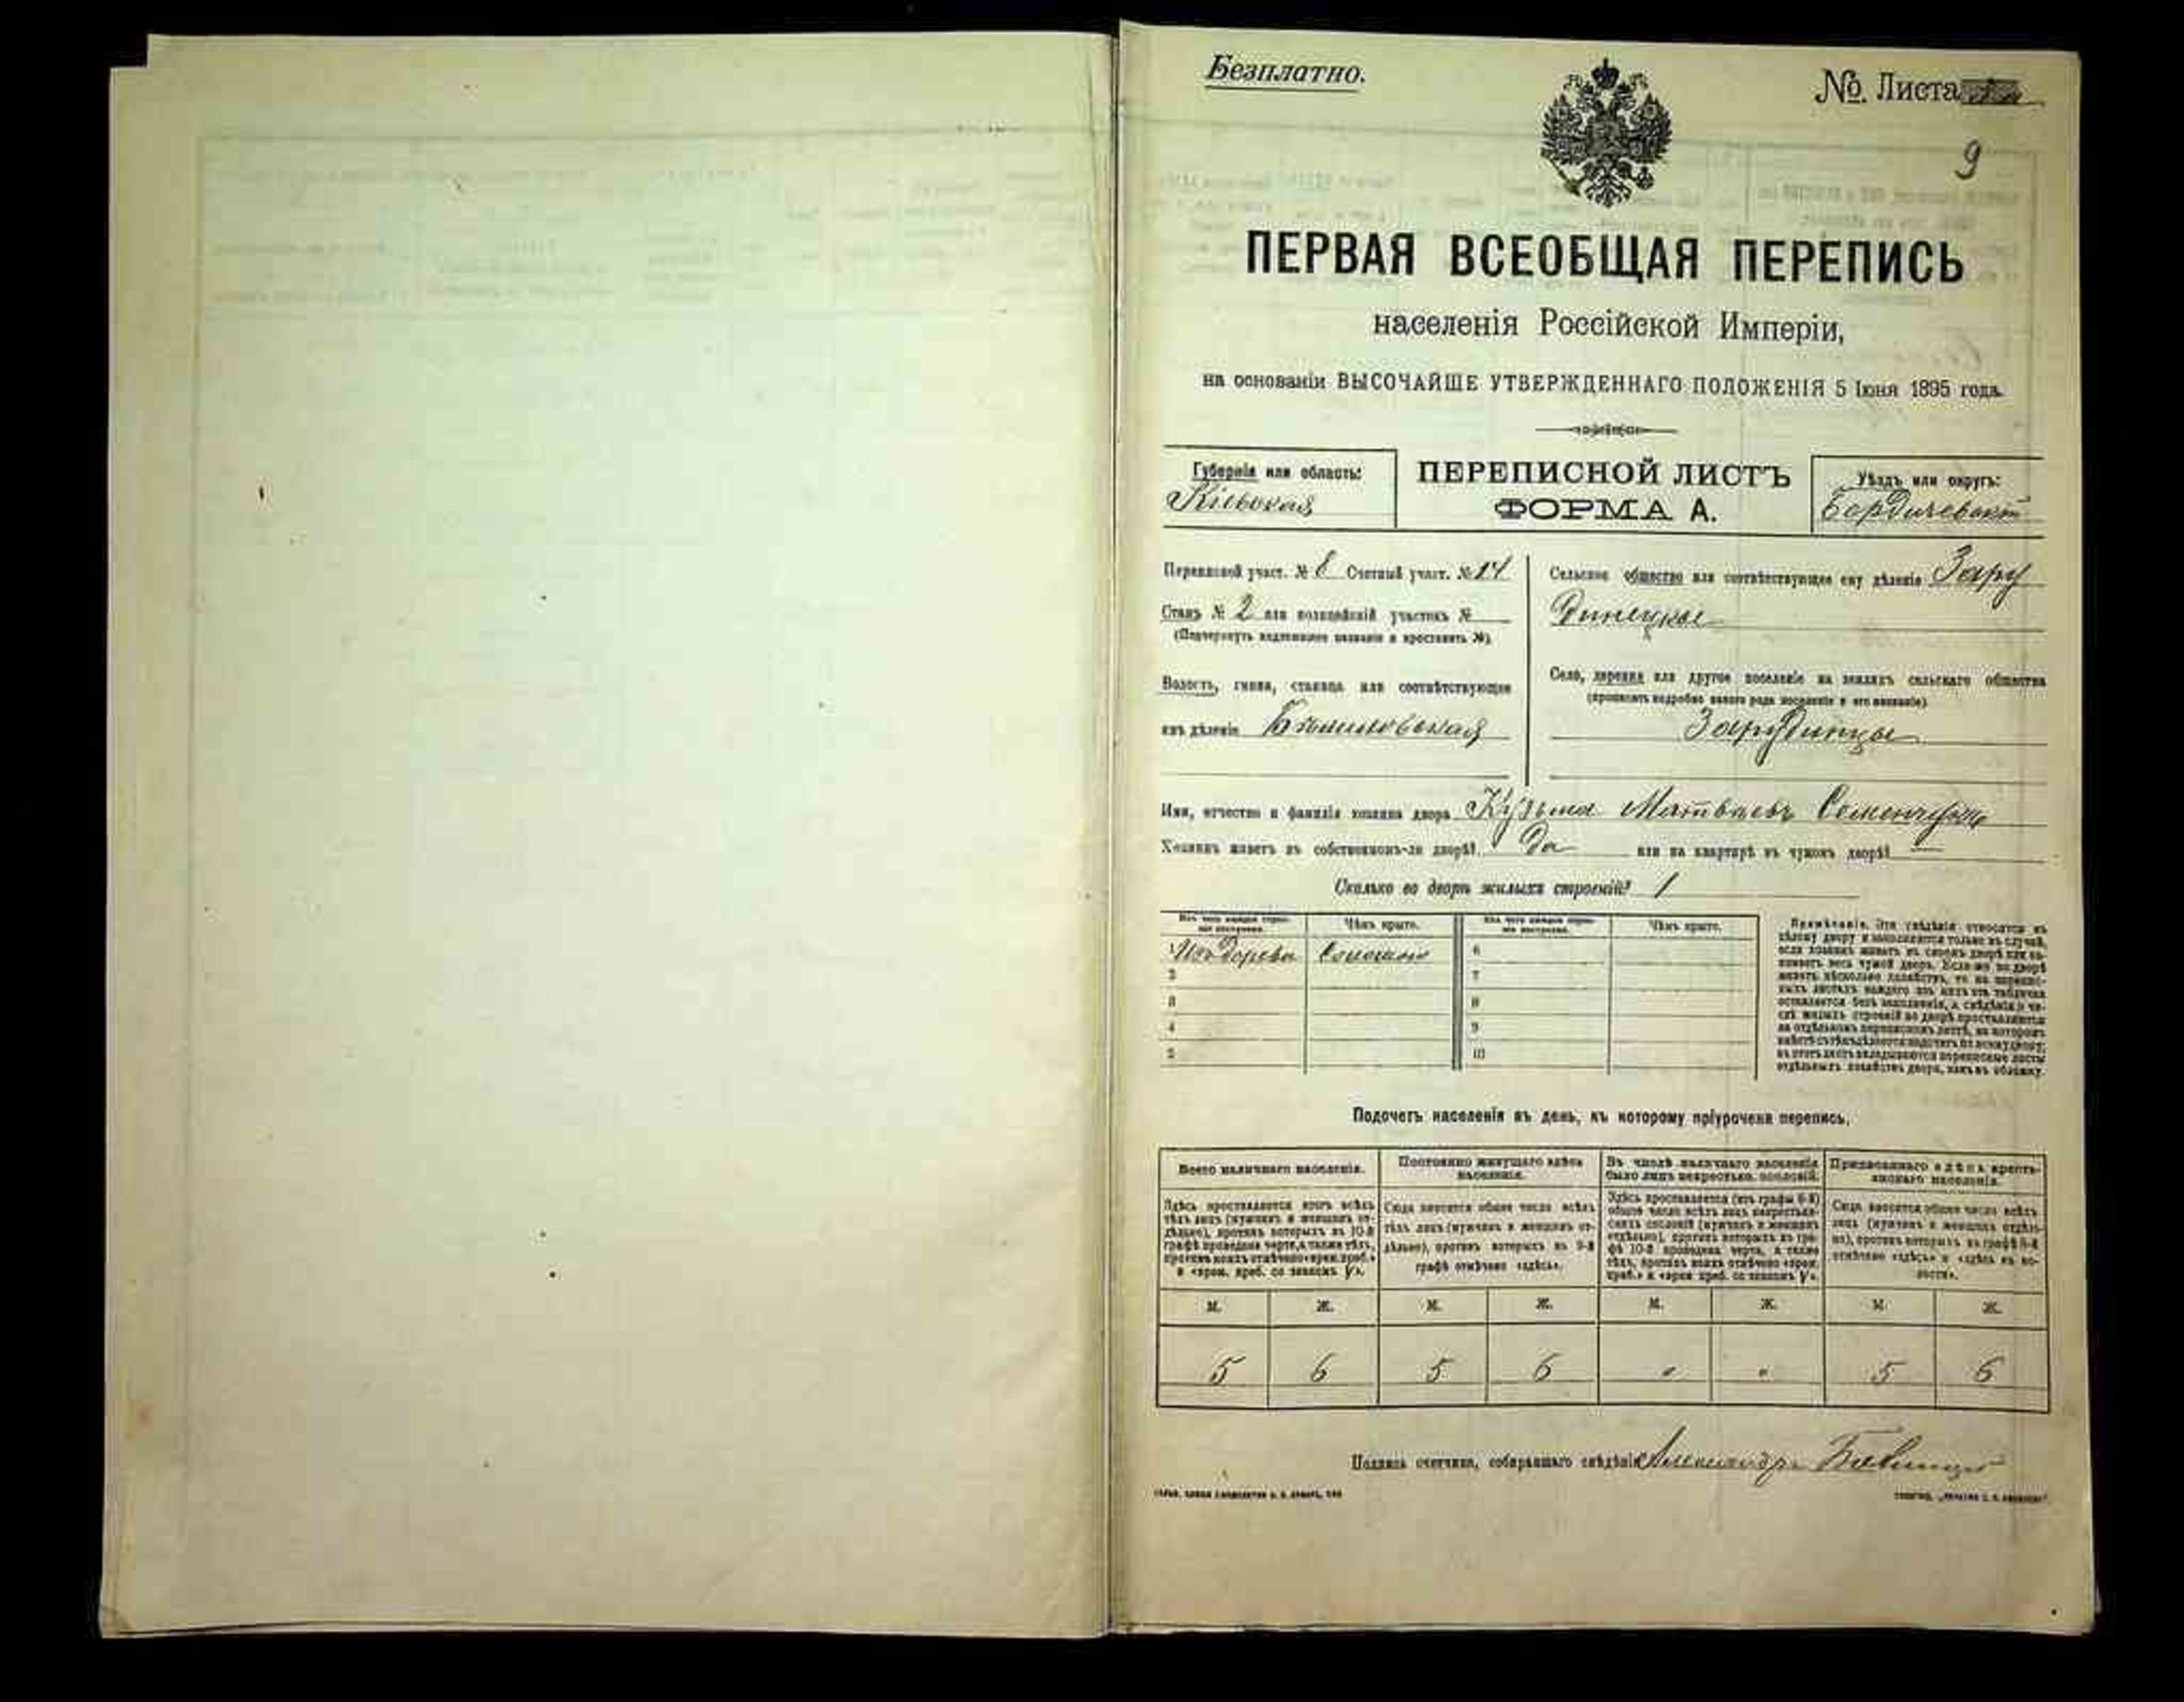 Безплатно.
№. Листа
9
ПЕРВАЯ ВСЕОБЩАЯ ПЕРЕПИСЬ
населенія Россійской Имперіи,
на основаніи ВЫСОЧАЙШЕ УТВЕРЖДЕННАГО ПОЛОЖЕНІЯ 5 Іюня 1895 года.
Губернія или область:
Кіевская
ПЕРЕПИСНОЙ ЛИСТЪ
ФОРМА А.
Уѣздъ или округъ:
Бердичевскій
Переписной участ. № 8 Счетный участ. № 14
Станъ № 2 или полицейскій участокъ №
(Подчеркнуть надлежащее названіе и проставить №).
Волость, гмина, станица или соотвѣтствующее
имъ дѣленіе
Сельское общество или соотвѣтствующее ему дѣленіе Зару
динецкое
Село, деревня или другое поселеніе на земляхъ сельскаго общества
(прописать подробно какого рода поселеніе и его названіе)
Зарудинцы
Имя, отчество и фамилія хозяина двора Кузьма Матвѣевъ Семенчукъ
Хозяинъ живетъ въ собственномъ-ли дворѣ? Да или на квартирѣ въ чужомъ дворѣ? —
Сколько во дворѣ жилыхъ строеній? 1
Изъ чего каждое строе-
ніе построено.
Чѣмъ крыто.
Изъ чего каждое строе-
ніе построено.
Чѣмъ крыто.
1 Изъ дерева Соломою 6
2 7
3 8
4 9
5 10
Примѣчаніе. Эти свѣдѣнія относятся къ
цѣлому двору и заполняются только въ случаѣ,
если хозяинъ живетъ въ своемъ дворѣ или за-
нимаетъ весь чужой дворъ. Если же во дворѣ
живетъ нѣсколько хозяйствъ, то на перепис-
ныхъ листахъ каждаго изъ нихъ эта табличка
оставляется безъ заполненія, а свѣдѣнія о чи-
слѣ жилыхъ строеній во дворѣ проставляются
на отдѣльномъ переписномъ листѣ, на которомъ
вмѣстѣ съ тѣмъ дѣлается подсчетъ по всему двору;
въ этотъ листъ вкладываются переписные листы
отдѣльныхъ хозяйствъ двора, какъ въ обложку.
Подсчетъ населенія въ день, къ которому пріурочена перепись.
Всего наличнаго населенія.
Постоянно живущаго здѣсь
населенія.
Въ числѣ наличнаго населенія
было лицъ некрестьян. сословій.
Приписаннаго здѣсь кресть-
янскаго населенія.
Здѣсь проставляется итогъ всѣхъ
тѣхъ лицъ (мужчинъ и женщинъ от-
дѣльно), противъ которыхъ въ 10-й
графѣ проведена черта, а также тѣхъ,
противъ коихъ отмѣчено «врем. преб.»
и «врем. преб. со знакомъ V».
Сюда вносится общее число всѣхъ
тѣхъ лицъ (мужчинъ и женщинъ от-
дѣльно), противъ которыхъ въ 9-й
графѣ отмѣчено «здѣсь».
Здѣсь проставляется (изъ графы 6-й)
общее число всѣхъ лицъ некрестьян-
скихъ сословій (мужчинъ и женщинъ
отдѣльно), противъ которыхъ въ гра-
фѣ 10-й проведена черта, а также
тѣхъ, противъ коихъ отмѣчено «врем.
преб.» и «врем. преб. со знакомъ V».
Сюда вносится общее число всѣхъ
лицъ (мужчинъ и женщинъ отдѣль-
но), противъ которыхъ въ графѣ 8-й
отмѣчено «здѣсь» и «здѣсь въ во-
лости».
М. Ж. М. Ж. М. Ж. М. Ж.
5 6 5 6 „ „ 5 6
Подпись счетчика, собиравшаго свѣдѣнія Александръ